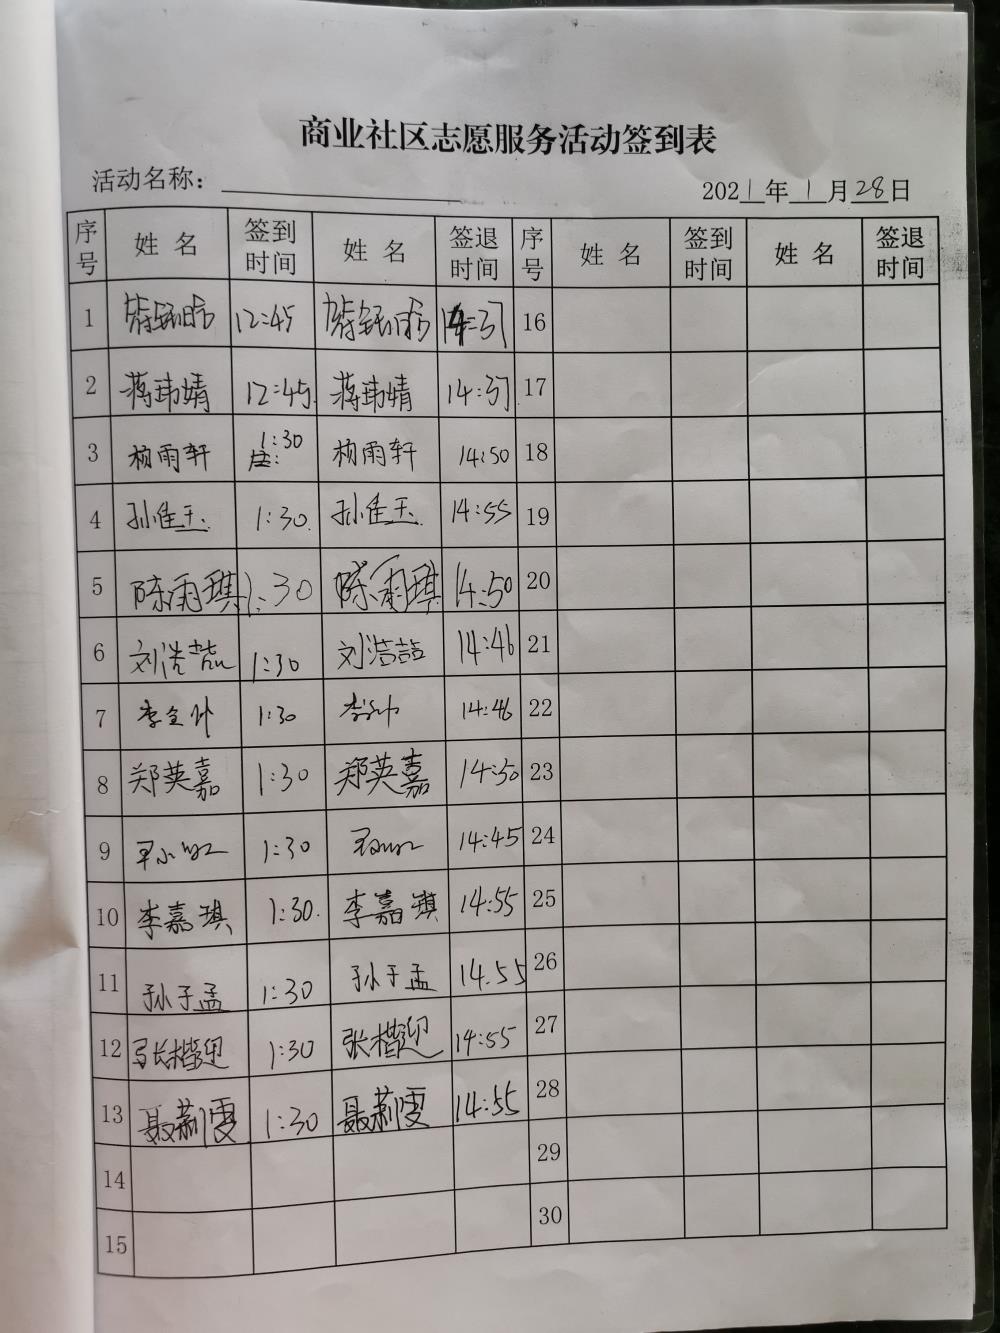 商业社区志愿服务活动签到表
活动名称：
2021年1月28日
序号 姓名 签到时间 姓名 签退时间 序号 姓名 签到时间 姓名 签退时间
1 12:45 14:37 16
2 蒋玮婧 12:45 蒋玮婧 14:37 17
3 杨雨轩 1:30 杨雨轩 14:50 18
4 孙佳玉 1:30 孙佳玉 14:55 19
5 陈雨琪 1:30 陈雨琪 14:50 20
6 刘浩喆 1:30 刘浩喆 14:46 21
7 1:30 14:46 22
8 郑英嘉 1:30 郑英嘉 14:50 23
9 1:30 14:45 24
10 李嘉琪 1:30 李嘉琪 14:55 25
11 孙于孟 1:30 孙于孟 14:55 26
12 张楷迎 1:30 张楷迎 14:55 27
13 聂莉雯 1:30 聂莉雯 14:55 28
14 29
15 30